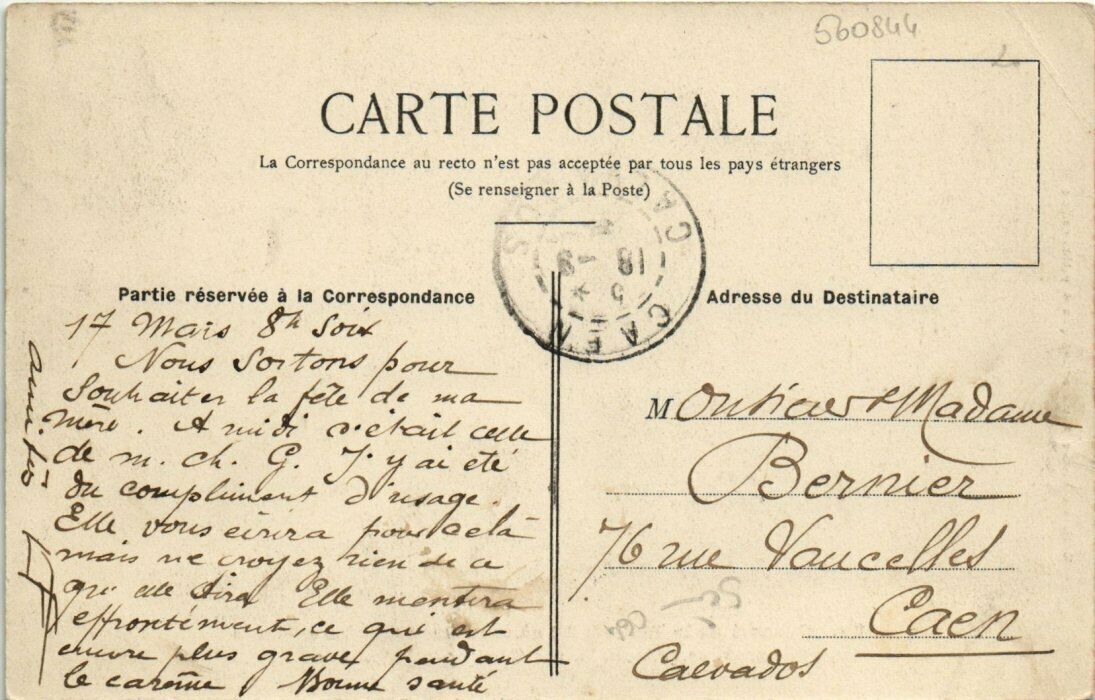 560844
CARTE POSTALE
La Correspondance au recto n'est pas acceptée par tous les pays étrangers
(Se renseigner à la Poste)
CAEN
18 - 3
Partie réservée à la Correspondance
17 Mars 8h Soir
Nous sortons pour
souhaiter la fête de ma
mère. A midi c'était celle
de m. ch. G. J'y ai été
du compliment d'usage.
Elle vous écrira pour celà
mais ne croyez rien de ce
qu'elle dira Elle mentira
effrontément, ce qui est
encore plus grave pendant
le carême Bonne santé
amitiés
Adresse du Destinataire
Monsieur & Madame
Bernier
76 rue Vaucelles
Caen
Calvados